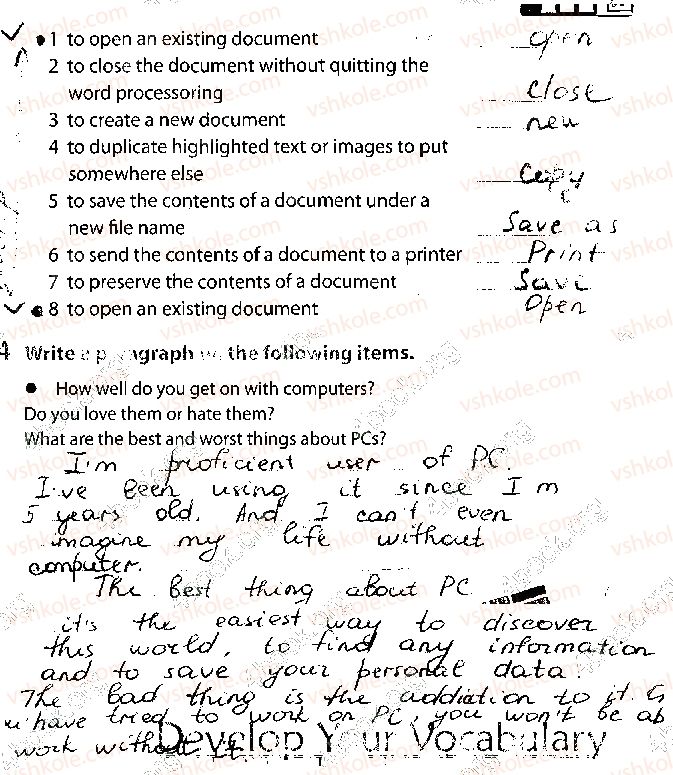 1 to open an existing document open
2 to close the document without quitting the
word processoring close
3 to create a new document new
4 to duplicate highlighted text or images to put
somewhere else Copy
5 to save the contents of a document under a
new file name Save as
6 to send the contents of a document to a printer Print
7 to preserve the contents of a document Save
8 to open an existing document Open
4 Write a paragraph on the following items.
● How well do you get on with computers?
Do you love them or hate them?
What are the best and worst things about PCs?
I'm proficient user of PC.
I've been using it since I'm
5 years old. And I can't even
imagine my life without
computer.
The best thing about PC
it's the easiest way to discover
this world, to find any information
and to save your personal data.
The bad thing is the addiction to it.
u have tried to work on PC, you won't be ab
work without it
Develop Your Vocabulary
vshkole.com